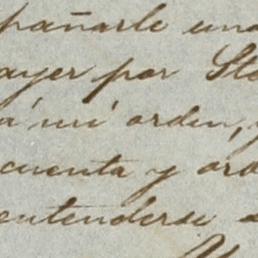 pañarle una
ayer por Sto
á mi orden, y
cuenta y ord
entenderse